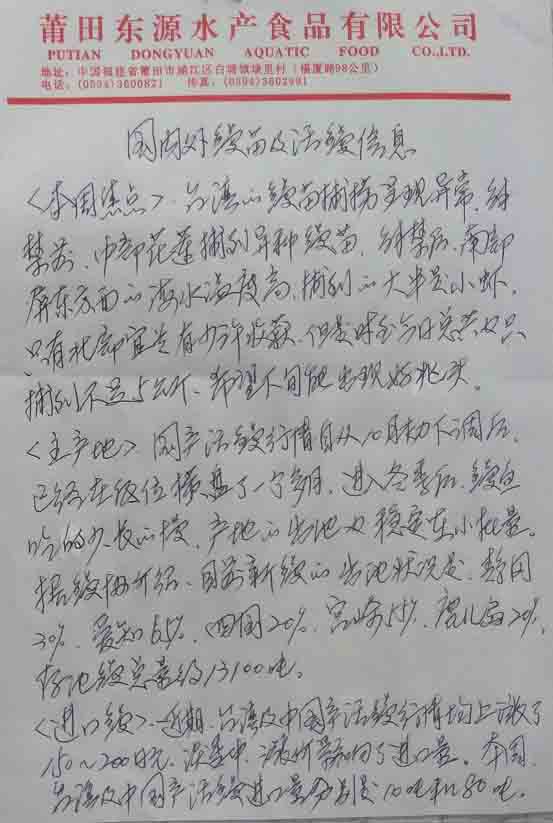 莆田东源水产食品有限公司
PUTIAN DONGYUAN AQUATIC FOOD CO.,LTD.
地址：中国福建省莆田市涵江区白塘镇埭里村（福厦路98公里）
电话：(0594)3600821 传真：(0594)3602991
国内外鳗苗及活鳗信息
〈本周焦点〉、台湾的鳗苗捕捞呈现异常，解
禁前、中部花莲捕到异种鳗苗，解禁后，南部
屏东方面的海水温度高，捕到的大半是小虾，
只有北部宜兰有少许收获、但是时至今日总共也只
捕到不足5公斤、希望下旬能出现好兆头。
〈主产地〉、国产活鳗行情自从10月初下调后，
已经在低位横盘了一个多月，进入冬季后，鳗鱼
吃的少、长的慢，产地的出池也稳定在小批量。
据鳗协介绍、目前新鳗的出池状况是，静冈
30%、爱知65%、四国20%、宫崎55%、鹿儿岛20%，
存池鳗总量约13100吨。
〈进口鳗〉、近期、台湾及中国产活鳗行情均上涨了
150～200日元，淡季中，涨价影响了进口量。本周，
台湾及中国产活鳗进口量分别是10吨和80吨。